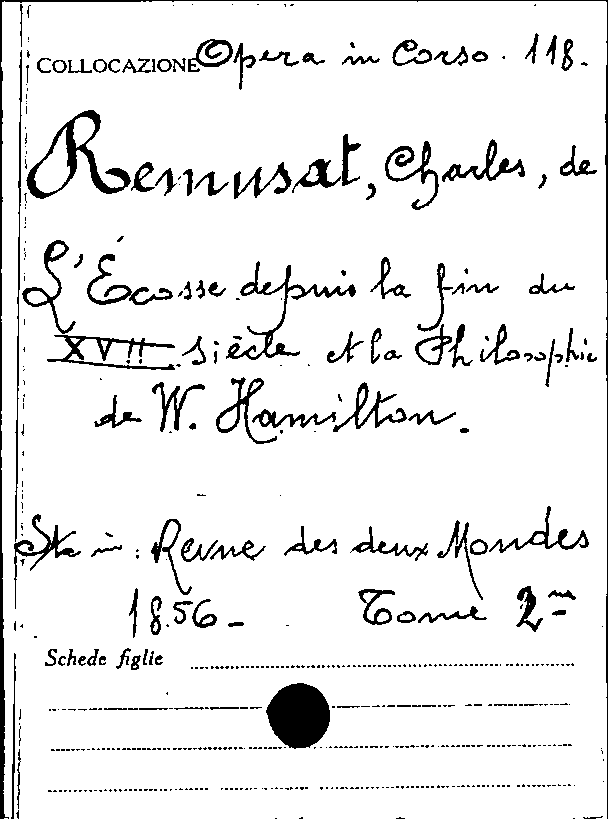 COLLOCAZIONE Opera in Corso. 118.
Remusat, Charles, de
L'Écosse depuis la fin du
XVII siècle et la Philosophie
de W. Hamilton.
Sta in: Revue des deux Mondes
1856- Tome 2me
Schede figlie